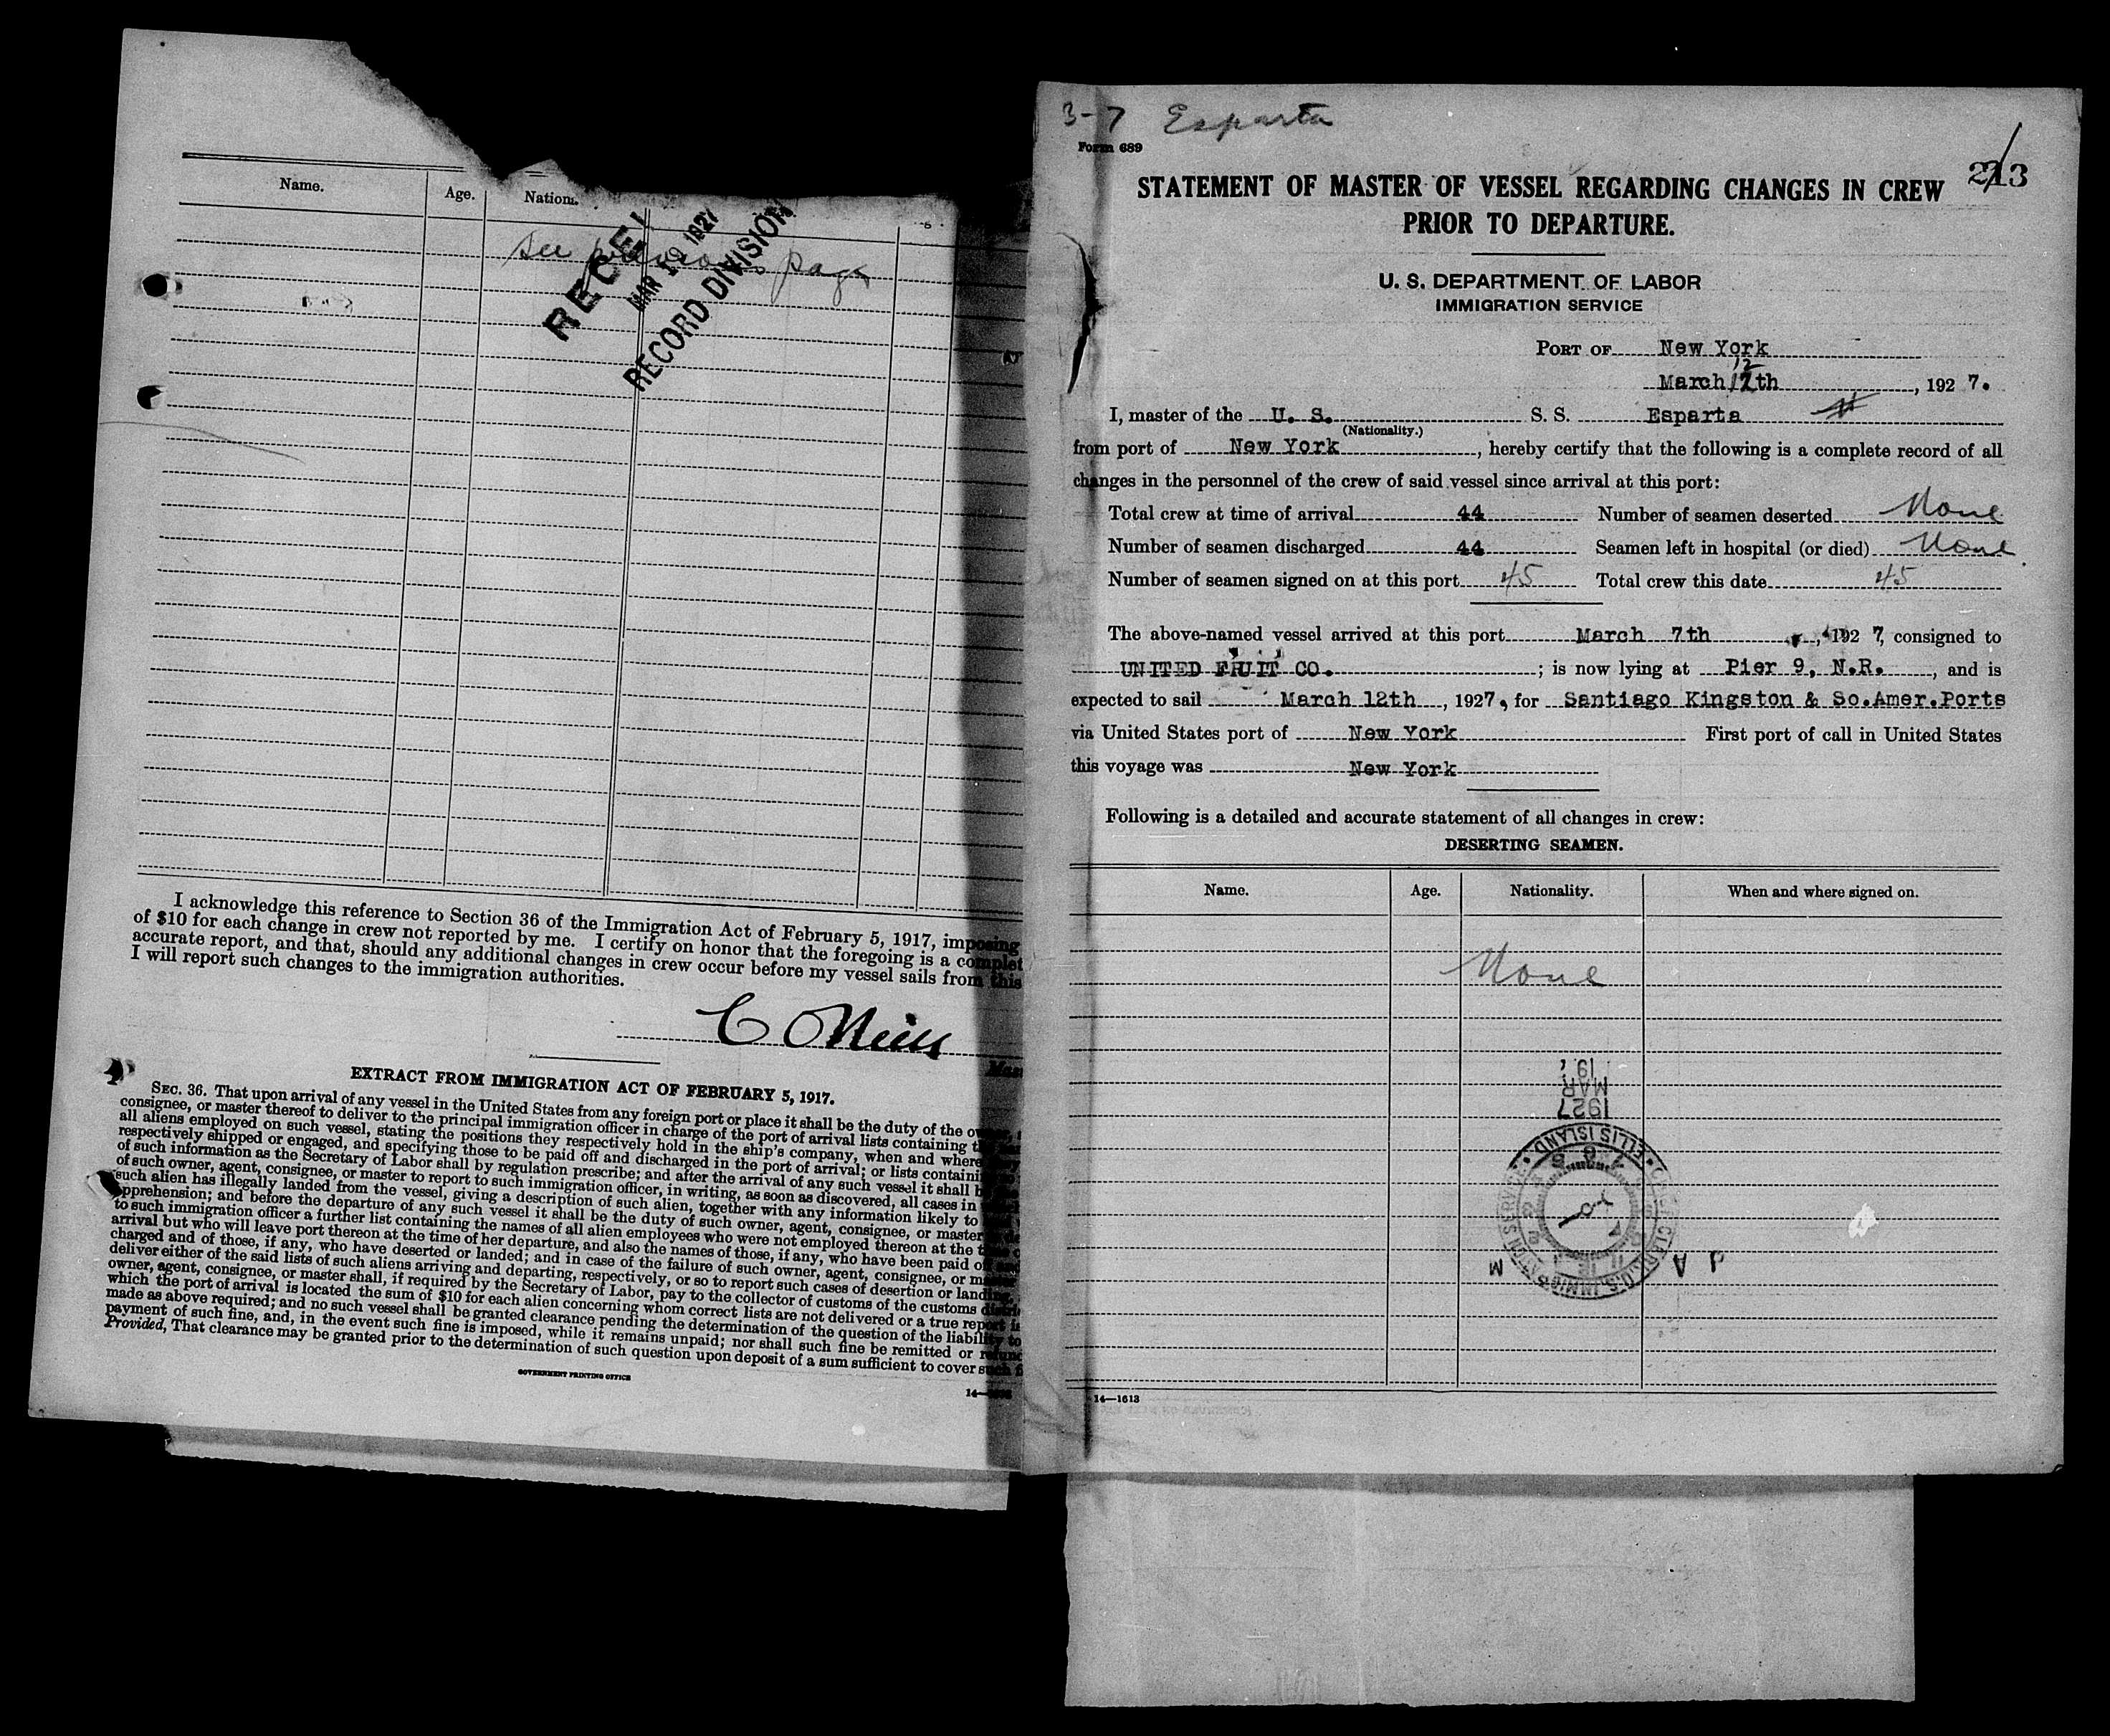 Name.
Age.
Nation
see previous page
RECEI
MAR 19 1927
RECORD DIVISION
I acknowledge this reference to Section 36 of the Immigration Act of February 5, 1917, imposing
of $10 for each change in crew not reported by me. I certify on honor that the foregoing is a complet
accurate report, and that, should any additional changes in crew occur before my vessel sails from this
I will report such changes to the immigration authorities.
Mas
EXTRACT FROM IMMIGRATION ACT OF FEBRUARY 5, 1917.
SEC. 36. That upon arrival of any vessel in the United States from any foreign port or place it shall be the duty of the owner,
consignee, or master thereof to deliver to the principal immigration officer in charge of the port of arrival lists containing
all aliens employed on such vessel, stating the positions they respectively hold in the ship's company, when and where
respectively shipped or engaged, and specifying those to be paid off and discharged in the port of arrival; or lists containi
of such information as the Secretary of Labor shall by regulation prescribe; and after the arrival of any such vessel it shall b
of such owner, agent, consignee, or master to report to such immigration officer, in writing, as soon as discovered, all cases in
such alien has illegally landed from the vessel, giving a description of such alien, together with any information likely to
apprehension; and before the departure of any such vessel it shall be the duty of such owner, agent, consignee, or master
to such immigration officer a further list containing the names of all alien employees who were not employed thereon at the
arrival but who will leave port thereon at the time of her departure, and also the names of those, if any, who have been paid
charged and of those, if any, who have deserted or landed; and in case of the failure of such owner, agent, consignee, or
deliver either of the said lists of such aliens arriving and departing, respectively, or so to report such cases of desertion or landing,
owner, agent, consignee, or master shall, if required by the Secretary of Labor, pay to the collector of customs of the customs distri
which the port of arrival is located the sum of $10 for each alien concerning whom correct lists are not delivered or a true report is
made as above required; and no such vessel shall be granted clearance pending the determination of the question of the liability to
payment of such fine, and, in the event such fine is imposed, while it remains unpaid; nor shall such fine be remitted or refund
Provided, That clearance may be granted prior to the determination of such question upon deposit of a sum sufficient to cover such
GOVERNMENT PRINTING OFFICE
3-7 Esparta
Form 689
213
STATEMENT OF MASTER OF VESSEL REGARDING CHANGES IN CREW
PRIOR TO DEPARTURE.
U. S. DEPARTMENT OF LABOR
IMMIGRATION SERVICE
PORT OF New York
12
March 12th, 1927.
I, master of the U. S. S. S. Esparta
(Nationality.)
from port of New York, hereby certify that the following is a complete record of all
changes in the personnel of the crew of said vessel since arrival at this port:
Total crew at time of arrival 44 Number of seamen deserted None
Number of seamen discharged 44 Seamen left in hospital (or died) None
Number of seamen signed on at this port 45 Total crew this date 45
The above-named vessel arrived at this port March 7th, 1927, consigned to
UNITED FRUIT CO.; is now lying at Pier 9, N.R., and is
expected to sail March 12th, 1927, for Santiago Kingston & So.Amer.Ports
via United States port of New York First port of call in United States
this voyage was New York
Following is a detailed and accurate statement of all changes in crew:
DESERTING SEAMEN.
Name. Age. Nationality. When and where signed on.
None
19
MAR
1927
ELLIS ISLAND
M
A
P
14—1613